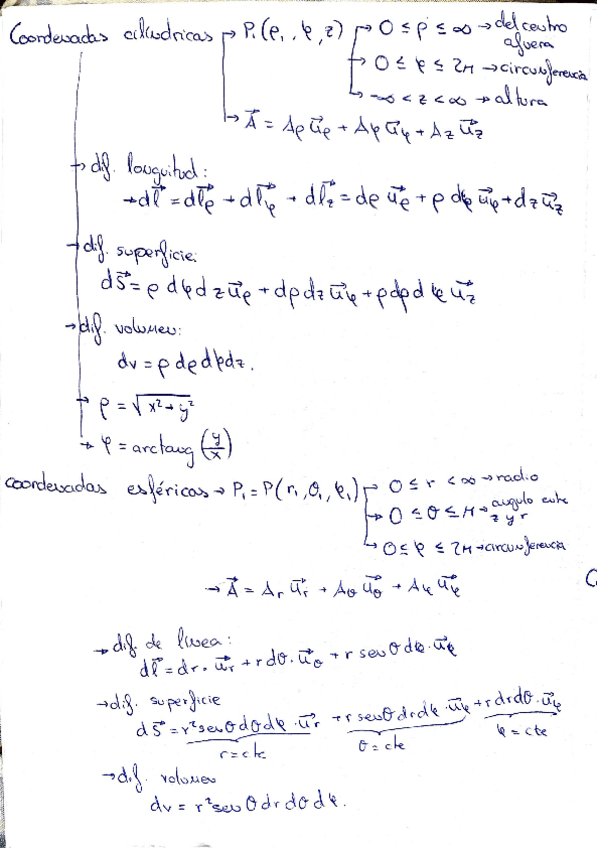 Coordenadas cilíndricas → P₁(ρ, φ, z) → 0 ≤ ρ ≤ ∞ → del centro afuera
→ 0 ≤ φ ≤ 2π → circunferencia
→ -∞ < z < ∞ → altura
→ A⃗ = Aρ u⃗ρ + Aφ u⃗φ + Az u⃗z
→ dif. longuitud:
→ dl⃗ = dl⃗ρ + dl⃗φ + dl⃗z = dρ u⃗ρ + ρ dφ u⃗φ + dz u⃗z
→ dif. superficie:
dS⃗ = ρ dφ dz u⃗ρ + dρ dz u⃗φ + ρ dρ dφ u⃗z
→ dif. volumen:
dv = ρ dρ dφ dz.
→ ρ = √(x² + y²)
→ φ = arctang (y/x)
coordenadas esféricas → P₁ = P(r₁, θ₁, φ₁) → 0 ≤ r < ∞ → radio
→ 0 ≤ θ ≤ π → angulo entre z y r
→ 0 ≤ φ ≤ 2π → circunferencia
→ A⃗ = Ar u⃗r + Aθ u⃗θ + Aφ u⃗φ
→ dif. de línea:
dl⃗ = dr · u⃗r + r dθ · u⃗θ + r senθ dφ · u⃗φ
→ dif. superficie
dS⃗ = r² senθ dθ dφ · u⃗r + r senθ dr dφ · u⃗φ + r dr dθ · u⃗φ
r = cte θ = cte φ = cte
→ dif. volumen
dv = r² senθ dr dθ dφ.